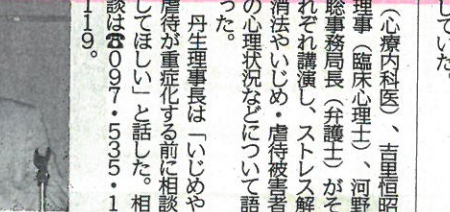 していた。
（心療内科医）、吉里恒昭
理事（臨床心理士）、河野
聡事務局長（弁護士）がそ
れぞれ講演し、ストレス解
消法やいじめ・虐待被害者
の心理状況などについて語
った。
　丹生理事長は「いじめや
虐待が重症化する前に相談
してほしい」と話した。相
談は☎097・535・1
119。